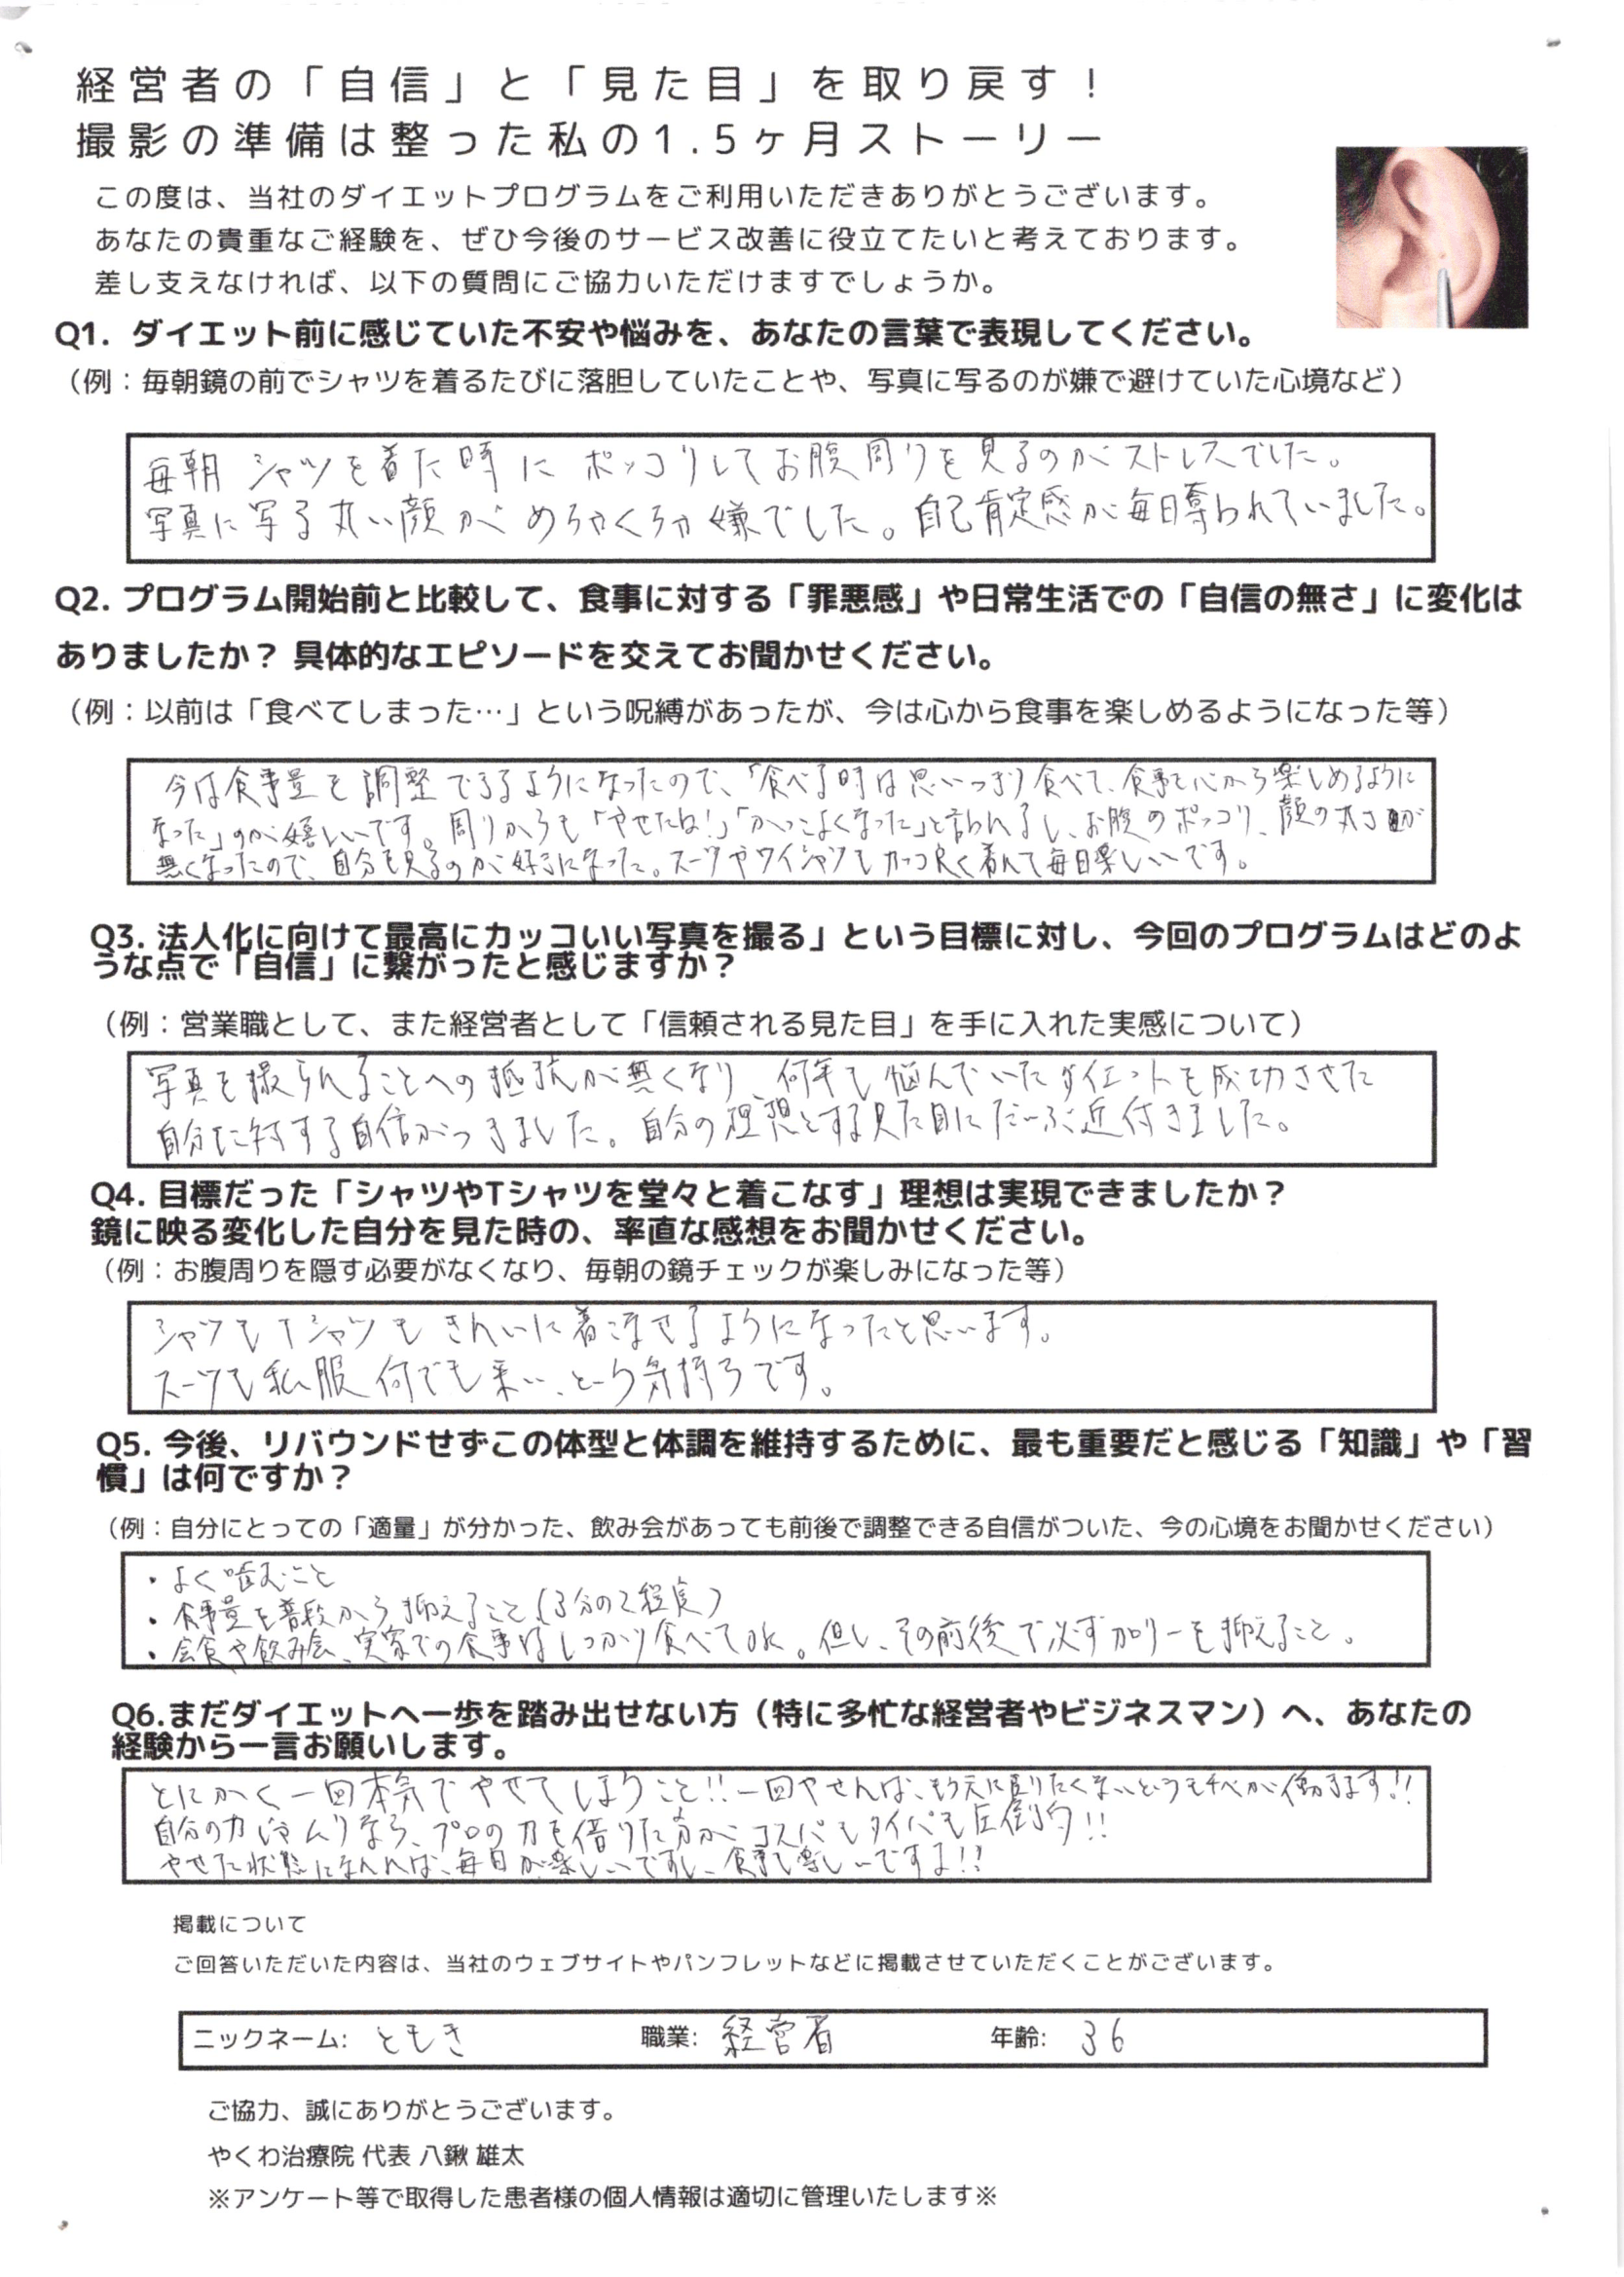 経営者の「自信」と「見た目」を取り戻す！
撮影の準備は整った私の1.5ヶ月ストーリー
この度は、当社のダイエットプログラムをご利用いただきありがとうございます。
あなたの貴重なご経験を、ぜひ今後のサービス改善に役立てたいと考えております。
差し支えなければ、以下の質問にご協力いただけますでしょうか。
Q1. ダイエット前に感じていた不安や悩みを、あなたの言葉で表現してください。
（例：毎朝鏡の前でシャツを着るたびに落胆していたことや、写真に写るのが嫌で避けていた心境など）
毎朝 シャツを着た時に ポッコリしてお腹周りを見るのがストレスでした。
写真に写る丸い顔がめちゃくちゃ嫌でした。自己肯定感が毎日奪われていました。
Q2. プログラム開始前と比較して、食事に対する「罪悪感」や日常生活での「自信の無さ」に変化は
ありましたか？ 具体的なエピソードを交えてお聞かせください。
（例：以前は「食べてしまった…」という呪縛があったが、今は心から食事を楽しめるようになった等）
今は食事量を調整できるようになったので、「食べる時は思いっきり食べて、食事を心から楽しめるように
なった」のが嬉しいです。周りからも「やせたね！」「かっこよくなった」と言われるし、お腹のポッコリ、顔の丸さが
無くなったので、自分を見るのが好きになった。スーツやワイシャツもカッコ良く着れて毎日楽しいです。
Q3. 法人化に向けて最高にカッコいい写真を撮る」という目標に対し、今回のプログラムはどのよ
うな点で「自信」に繋がったと感じますか？
（例：営業職として、また経営者として「信頼される見た目」を手に入れた実感について）
写真を撮られることへの抵抗が無くなり、何年も悩んでいたダイエットを成功させた
自分に対する自信がつきました。自分の理想とする見た目にだいぶ近付きました。
Q4. 目標だった「シャツやTシャツを堂々と着こなす」理想は実現できましたか？
鏡に映る変化した自分を見た時の、率直な感想をお聞かせください。
（例：お腹周りを隠す必要がなくなり、毎朝の鏡チェックが楽しみになった等）
シャツもTシャツもきれいに着こなせるようになったと思います。
スーツも私服何でも来い、という気持ちです。
Q5. 今後、リバウンドせずこの体型と体調を維持するために、最も重要だと感じる「知識」や「習
慣」は何ですか？
（例：自分にとっての「適量」が分かった、飲み会があっても前後で調整できる自信がついた、今の心境をお聞かせください）
・よく噛むこと
・食事量を普段から抑えること（3分の2程度）
・会食や飲み会、実家での食事はしっかり食べてOK。但し、その前後で必ずカロリーを抑えること。
Q6.まだダイエットへ一歩を踏み出せない方（特に多忙な経営者やビジネスマン）へ、あなたの
経験から一言お願いします。
とにかく一回本気でやせてしまうこと!! 一回やせれば、もう元に戻りたくないというモチベが働きます!!
自分の力じゃムリなら、プロの力を借りた方がコスパもタイパも圧倒的!!
やせた状態になれれば、毎日が楽しいですし、食事も楽しいですよ!!
掲載について
ご回答いただいた内容は、当社のウェブサイトやパンフレットなどに掲載させていただくことがございます。
ニックネーム: ともき 職業: 経営者 年齢: 36
ご協力、誠にありがとうございます。
やくわ治療院 代表 八鍬 雄太
※アンケート等で取得した患者様の個人情報は適切に管理いたします※